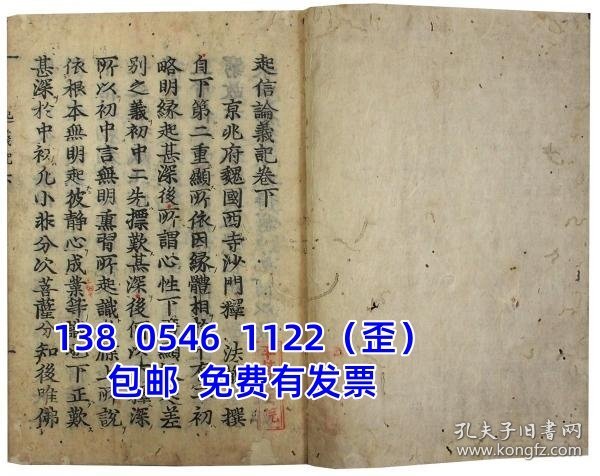 起信論義記卷下
京兆府魏國西寺沙門釋 法 撰
自下第二重顯所依因緣體相 初
略明緣起甚深後所謂心性下 顯 差
別之義初中二先摽歎甚深後 深
所以初中言無明熏習所起識 說
依根本無明起彼靜心成業等識也下正歎
甚深於中初凢小非分次菩薩分知後唯佛
138 0546 1122（歪）
包邮 免费有发票
孔夫子旧书网
www.kongfz.com